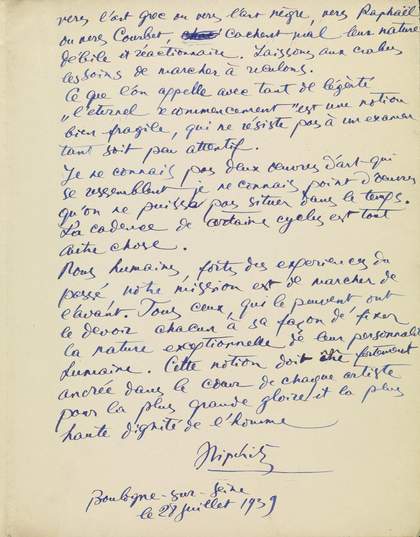 vers l'art grec ou vers l'art nègre, vers Raphaël
ou vers Courbet, cachent mal leur nature
débile et réactionnaire. Laissons aux crabes
les soins de marcher à reculons.
Ce que l'on appelle avec tant de légèreté
"l'éternel recommencement" est une notion
bien fragile, qui ne résiste pas à un examen
tant soit peu attentif.
Je ne connais pas deux œuvres d'art qui
se ressemblent je ne connais point d'œuvres
qu'on ne puisse pas situer dans le temps.
La cadence de certains cycles est tout
autre chose.
Nous humains, forts des expériences du
passé notre mission est de marcher de
l'avant. Tous ceux, qui le peuvent ont
le devoir chacun à sa façon de fixer
la nature exceptionnelle de leur personnalité
humaine. Cette notion doit être fortement
ancrée dans le cœur de chaque artiste
pour la plus grande gloire et la plus
haute dignité de l'homme
Lipchitz
Boulogne-sur-Seine
le 28 juillet 1939